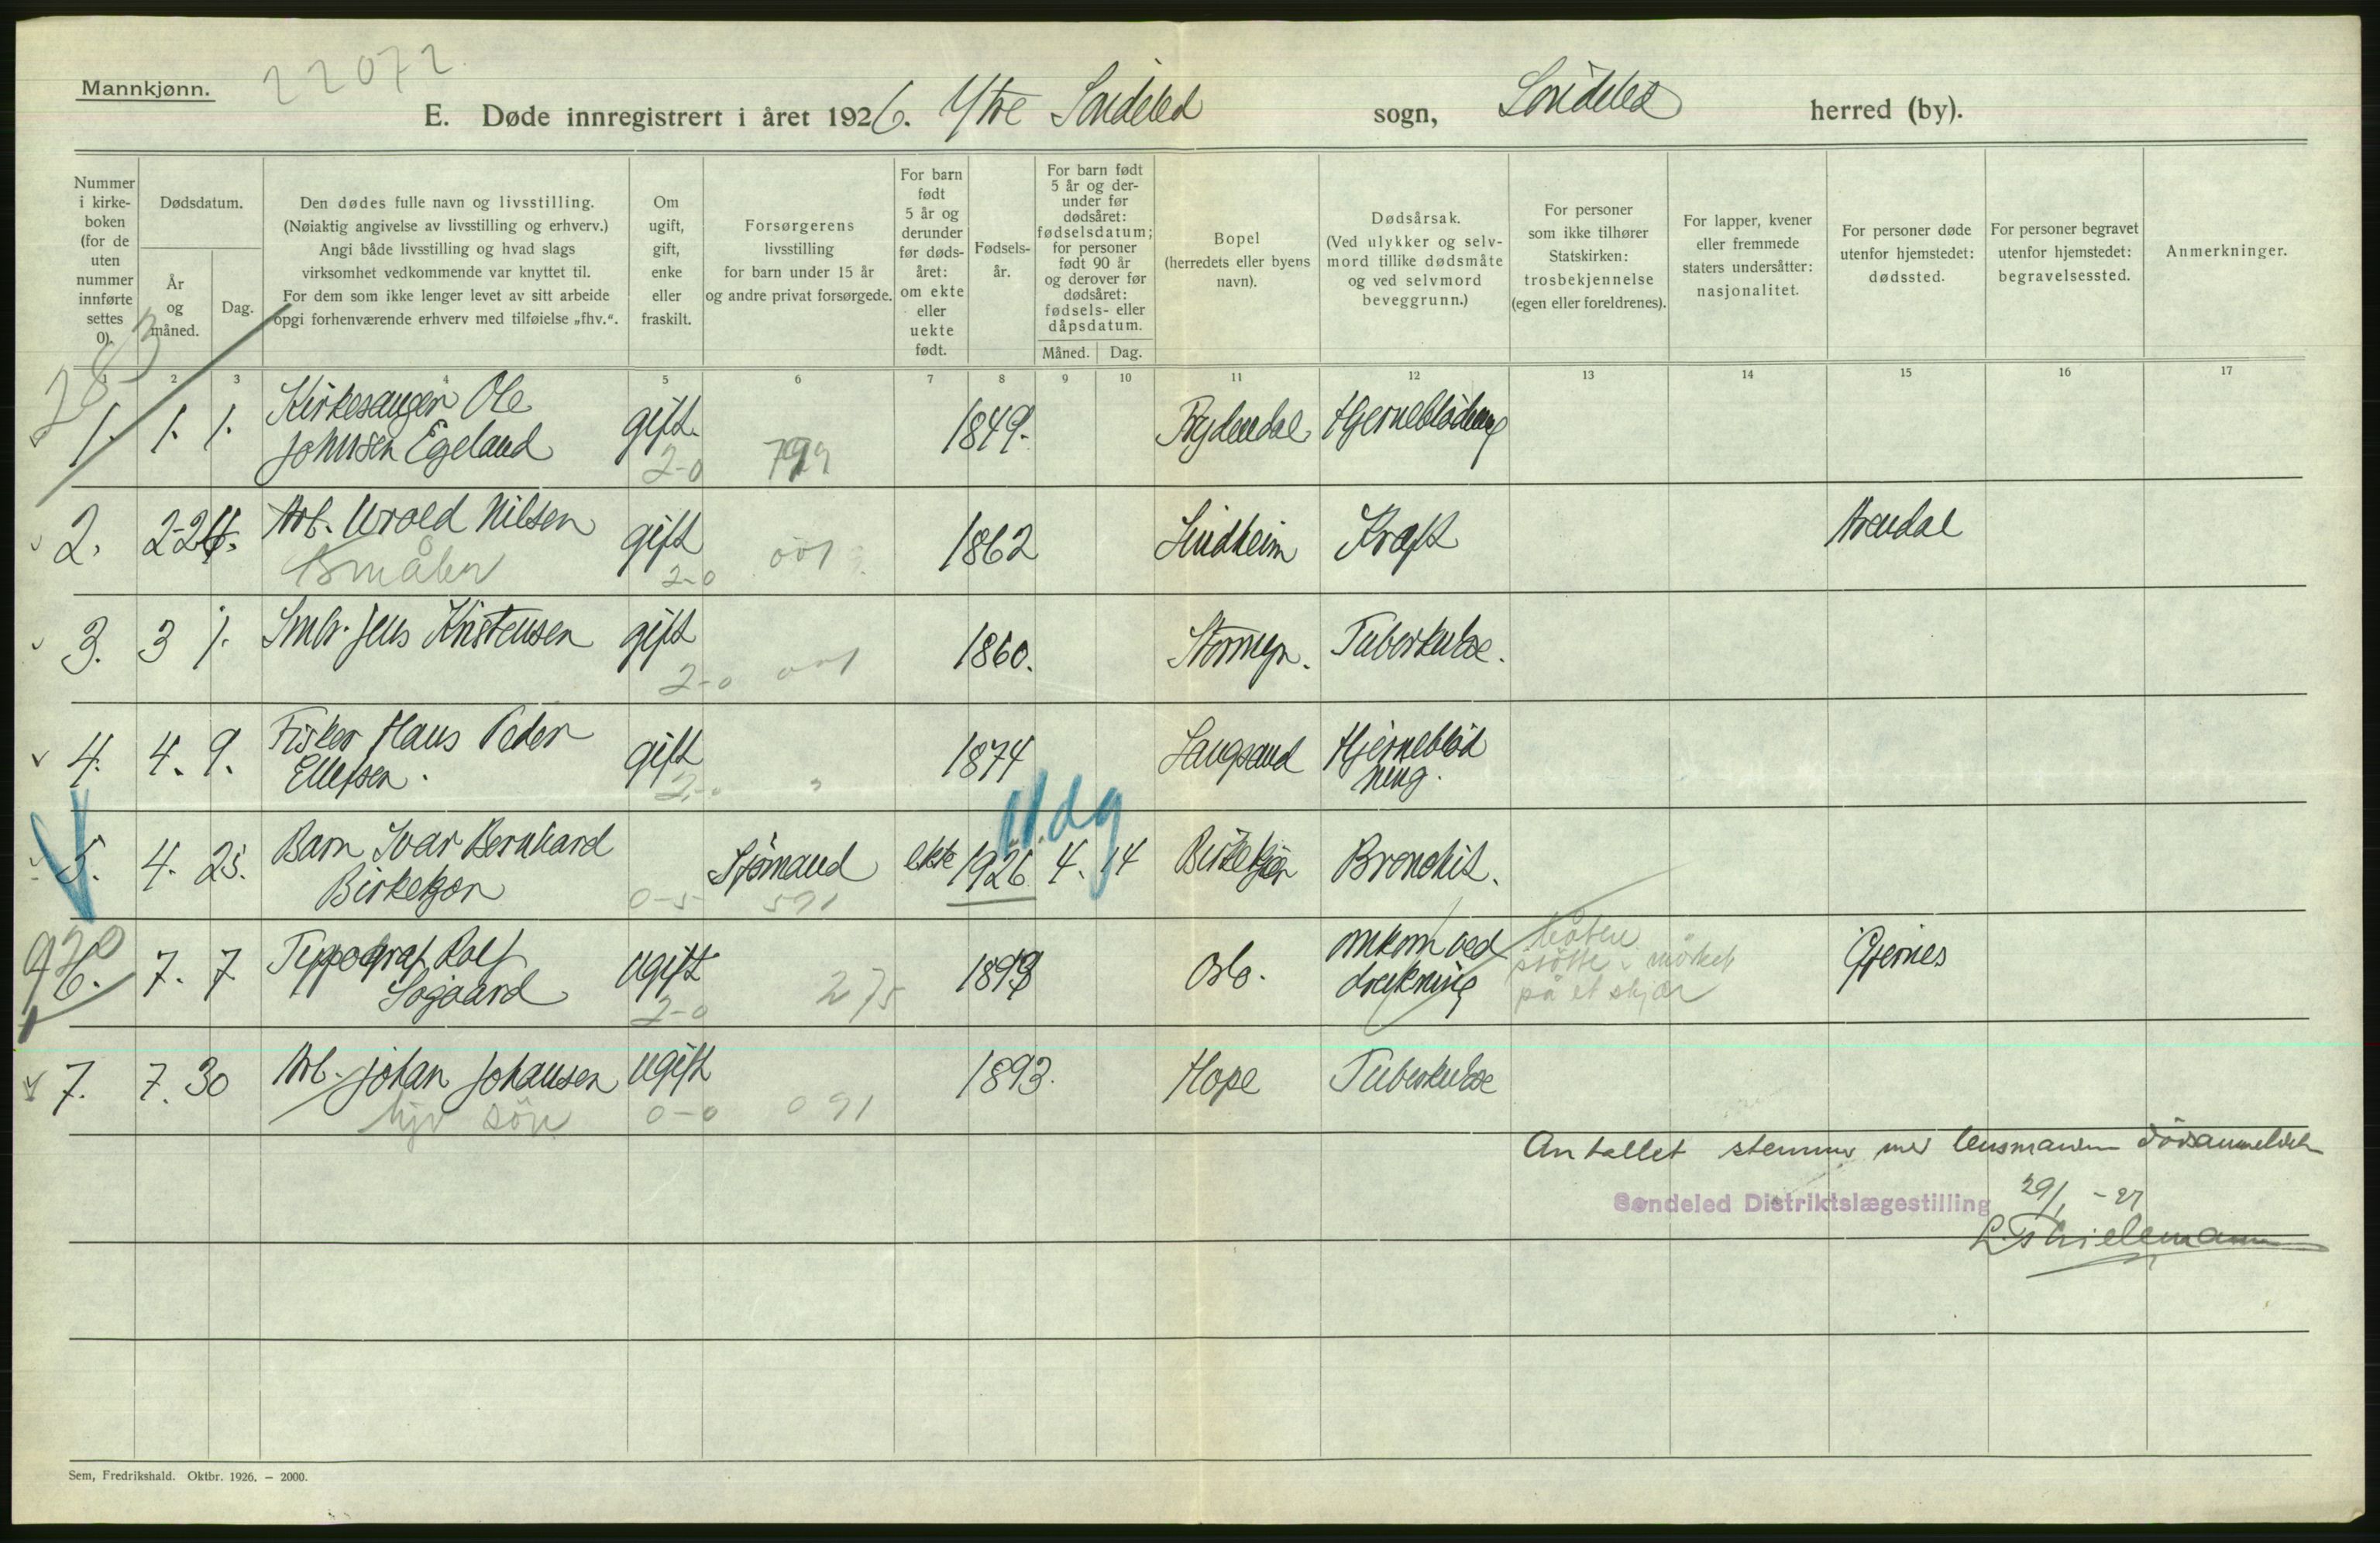 22072.
Mannkjønn.
E. Døde innregistrert i året 1926. Ytre Søndeled sogn, Søndeled herred (by).
Nummer i kirkeboken (for de uten nummer innførte settes 0).
Dødsdatum.
År og måned.
Dag.
Den dødes fulle navn og livsstilling.
(Nøiaktig angivelse av livsstilling og erhverv.)
Angi både livsstilling og hvad slags
virksomhet vedkommende var knyttet til.
For dem som ikke lenger levet av sitt arbeide
opgi forhenværende erhverv med tilføielse „fhv.“.
Om ugift, gift, enke eller fraskilt.
Forsørgerens
livsstilling
for barn under 15 år
og andre privat forsørgede.
For barn født 5 år og derunder før dødsåret: om ekte eller uekte født.
Fødselsår.
For barn født 5 år og derunder før dødsåret: fødselsdatum; for personer født 90 år og derover før dødsåret: fødsels- eller dåpsdatum.
Måned. Dag.
Bopel
(herredets eller byens navn).
Dødsårsak.
(Ved ulykker og selvmord tillike dødsmåte og ved selvmord beveggrunn.)
For personer som ikke tilhører Statskirken: trosbekjennelse (egen eller foreldrenes).
For lapper, kvener eller fremmede staters undersåtter: nasjonalitet.
For personer døde utenfor hjemstedet: dødssted.
For personer begravet utenfor hjemstedet: begravelsessted.
Anmerkninger.
1 2 3 4 5 6 7 8 9 10 11 12 13 14 15 16 17
283
1. 1. 1. Kirkesanger Ole
Johnsen Egeland gift. 2-0 799 1849. Frydendal Hjerneblødning
2. 2 24. Arb. Uvold Nilsen
Småbr gift 2-0 001 1862 Lindheim Kræft Arendal
3. 3 1. Smbr. Jens Kristensen gift 2-0 001 1860. Stormyr. Tuberkulose.
4. 4. 9. Fisker Hans Peder
Ellefsen. gift 2-0 " 1874 Langsand Hjerneblød
ning.
11. dg
5. 4. 25. Barn Ivar Bernhard
Birkekjær 0-5 Sjømand 591 ekte 1926 4. 14 Birkekjær Bronchit.
920
6. 7. 7 Typograf Rolf
Søgaard ugift 2-0 275 1899 Oslo. omkom ved
drukning båten
støtte i mørket
på et skjær Gjernes
7. 7. 30 Arb. Johan Johansen
hjv søn ugift 0-0 091 1893. Hope Tuberkulose
Antallet stemmer med lensmannens dødsanmeldelser
Søndeled Distriktslægestilling 29/1 - 27
L. Thielemann
Sem, Fredrikshald. Oktbr. 1926. – 2000.